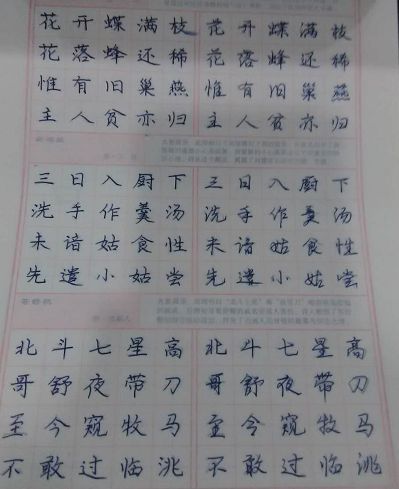 花开蝶满枝 花开蝶满枝
花落蜂还稀 花落蜂还稀
惟有旧巢燕 惟有旧巢燕
主人贫亦归 主人贫亦归
三日入厨下 三日入厨下
洗手作羹汤 洗手作羹汤
未谙姑食性 未谙姑食性
先遣小姑尝 先遣小姑尝
哥舒歌
北斗七星高 北斗七星高
哥舒夜带刀 哥舒夜带刀
至今窥牧马 至今窥牧马
不敢过临洮 不敢过临洮